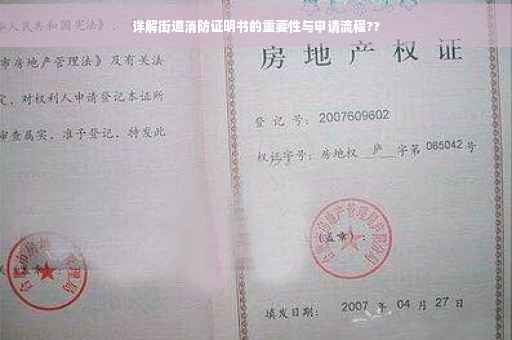 详解街道消防证明书的重要性与申请流程??
华人民共和国宪法》
市房地产管理法》及有关法
定，对权利人申请登记本证所
审查属实，准予登记，特发此
房地产权证
登记号：2007609602
权证字号：房地权 庐 字第 065042 号
(盖章)：
填发日期：2007 年 04 月 27 日